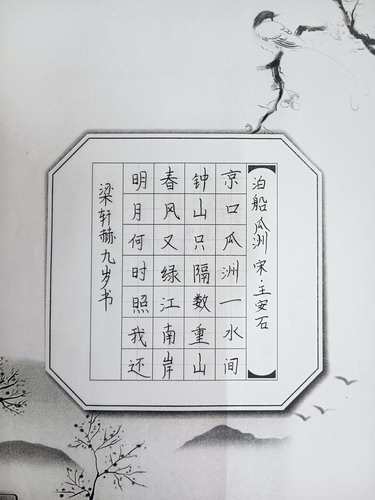 泊船瓜洲 宋·主安石
京口瓜洲一水间
钟山只隔数重山
春风又绿江南岸
明月何时照我还
梁轩赫九岁书